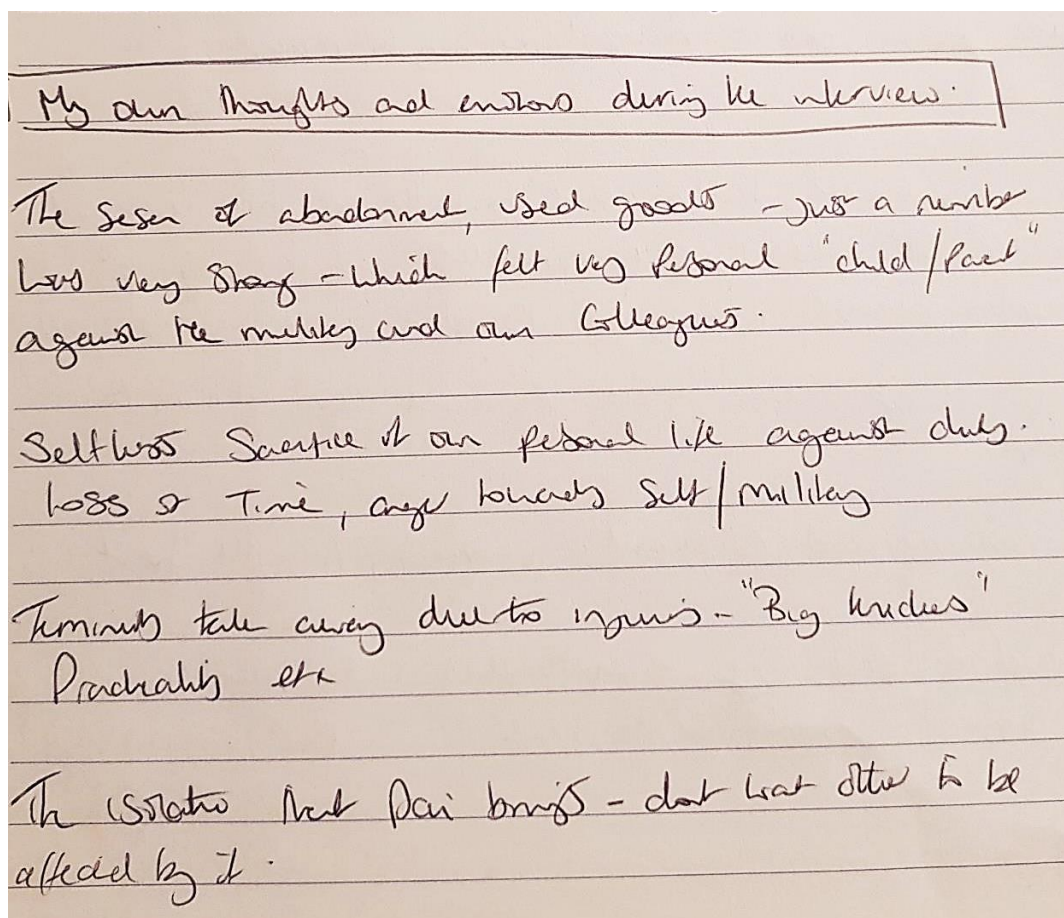 My own thoughts and emotions during the interview.
The sesen of abandonment, used goods - just a number
was very strong - which felt very personal "child/Parent"
against the military and own Colleagues.
Selfless Sacrifice of own personal life against duty.
Loss of Time, anger towards Self/military
Femininity take away due to injuries - "Big knickers"
Practicality etc
The isolation that Pain brings - dont want other to be
affected by it.